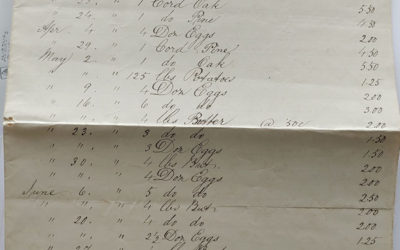 " 23. " 1 Cord Oak 5.50
" 24. " 1 do Pine 4.50
Apr 4 " 4 Doz Eggs 2.00
" 29. " 1 Cord Pine 4.50
May 2 " 1 do Oak 5.50
" " " 125 lbs Potatoes 1.25
" 9. " 4 Doz Eggs 2.00
" 16. " 6 do do 3.00
" " " 4 lbs Butter @ 50c 2.00
" 23. " 3 do do 1.50
" " " 3 Doz Eggs 1.50
" 30. " 4 lbs But. 2.00
" " " 4 Doz Eggs 2.00
June 6. " 5 do do 2.50
" " " 4 lbs But. 2.00
" 20. " 4 do do 2.00
" " " 2½ Doz Eggs 1.25